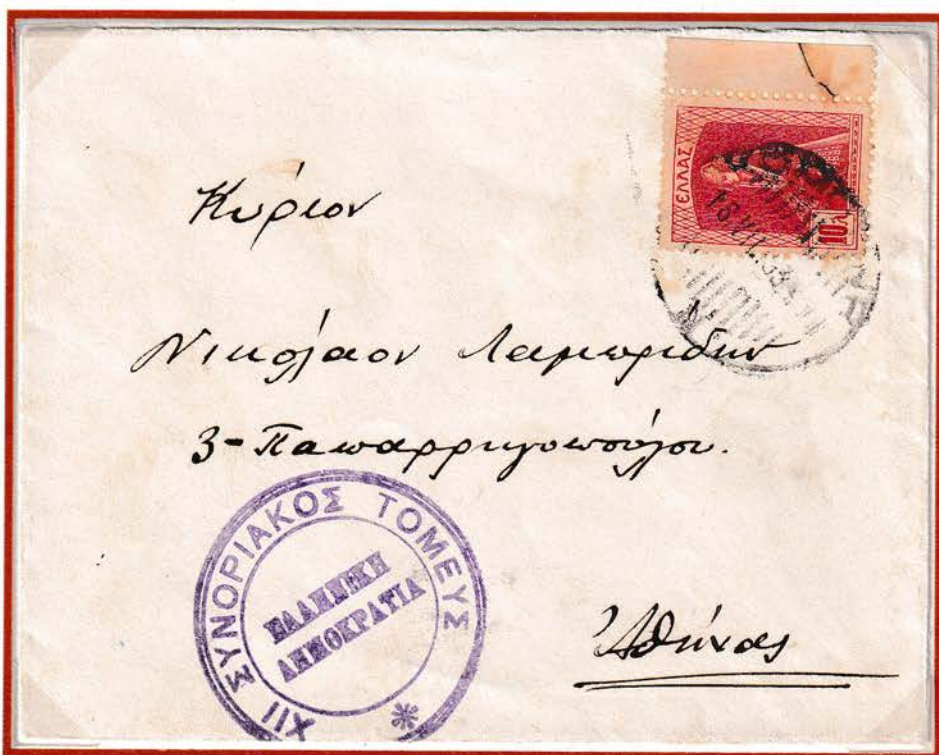 ΕΛΛΑΣ
10
Κύριον
Νικόλαον Λαμπρίδην
3-Παπαρρηγοπούλου.
XII ΣΥΝΟΡΙΑΚΟΣ ΤΟΜΕΥΣ
ΕΛΛΗΝΙΚΗ
ΔΗΜΟΚΡΑΤΙΑ
Ἀθήνας